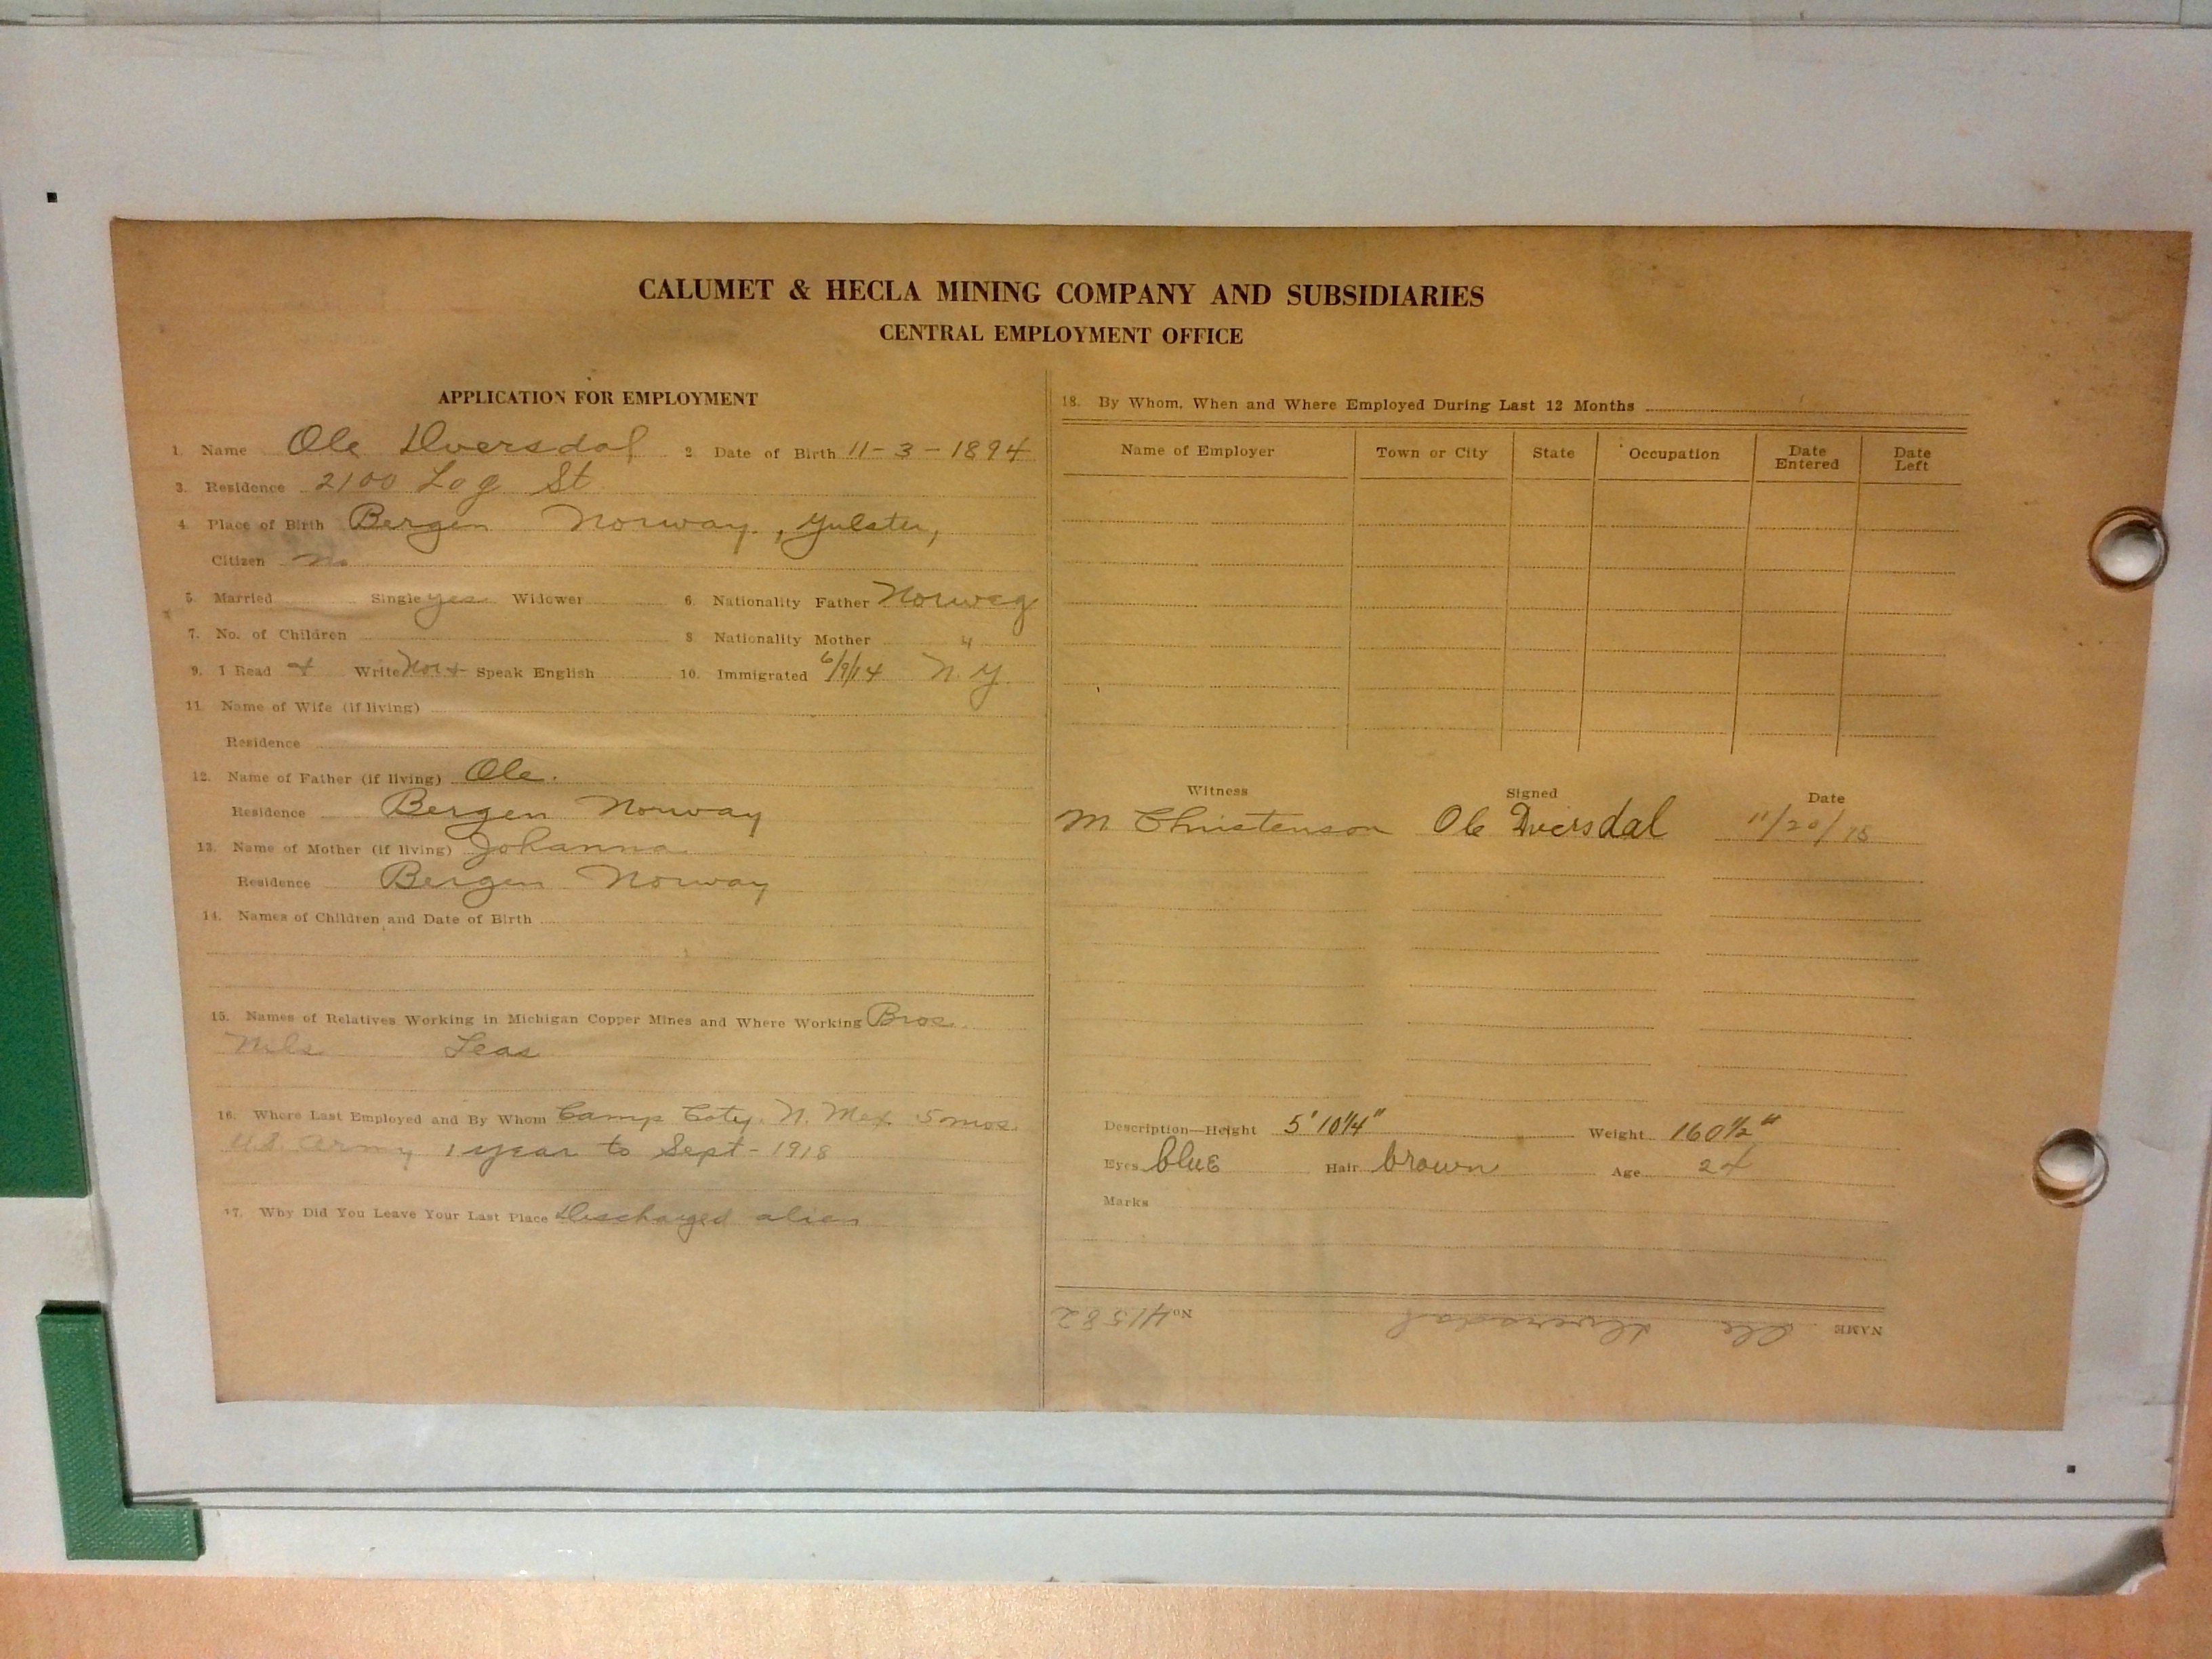 CALUMET & HECLA MINING COMPANY AND SUBSIDIARIES
CENTRAL EMPLOYMENT OFFICE
APPLICATION FOR EMPLOYMENT
1. Name Ole Dversdal 2. Date of Birth 11-3-1894
3. Residence 2100 Log St
4. Place of Birth Bergen Norway.,
Citizen no
5. Married Single yes Widower 6. Nationality Father Norweg
7. No. of Children 8. Nationality Mother "
9. I Read + Write Nor + Speak English 10. Immigrated 6/9/14 N.Y.
11. Name of Wife (if living)
Residence
12. Name of Father (if living) Ole.
Residence Bergen Norway
13. Name of Mother (if living) Johanna
Residence Bergen Norway
14. Names of Children and Date of Birth
15. Names of Relatives Working in Michigan Copper Mines and Where Working Bros.
Nils Leas
16. Where Last Employed and By Whom Camp Coty. N. Mex. 5 mos.
U.S. Army 1 year to Sept - 1918
17. Why Did You Leave Your Last Place Discharged alien
18. By Whom, When and Where Employed During Last 12 Months
Name of Employer Town or City State Occupation Date Entered Date Left
Witness Signed Date
M Christenson Ole Dversdal 11/20/18
Description—Height 5' 10 1/4" Weight 160 1/2 "
Eyes blue Hair brown Age 24
Marks
NAME Ole Dversdal No 41582